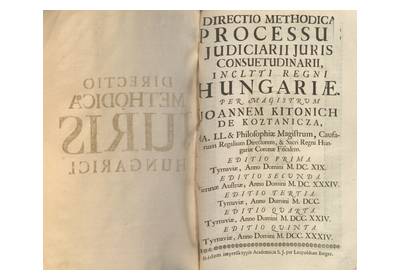 DIRECTIO
METHODICA
JURIS
HUNGARICI.
DIRECTIO METHODICA
PROCESSU
JUDICIARII JURIS
CONSUETUDINARII,
INCLYTI REGNI
HUNGARIÆ.
PER MAGISTRUM
JOANNEM KITONICH
DE KOZTANICZA,
AA. LL. & Philosophiæ Magistrum, Causa-
rum Regalium Directorem, & Sacri Regni Hun-
gariæ Coronæ Fiscalem.
EDITIO PRIMA
Tyrnaviæ, Anno Domini M. DC. XIX.
EDITIO SECUNDA
Viennæ Austriæ, Anno Dom. M. DC. XXXIV.
EDITIO TERTIA
Tyrnaviæ, Anno Domini M. DCC.
EDITIO QUARTA
Tyrnaviæ, Anno Domini M. DCC. XXIV.
EDITIO QUINTA
Tyrnaviæ, Anno Domini M. DCC. XXXIV.
Ibidem impressa typis Academicis S. J. per Leopoldum Berger.